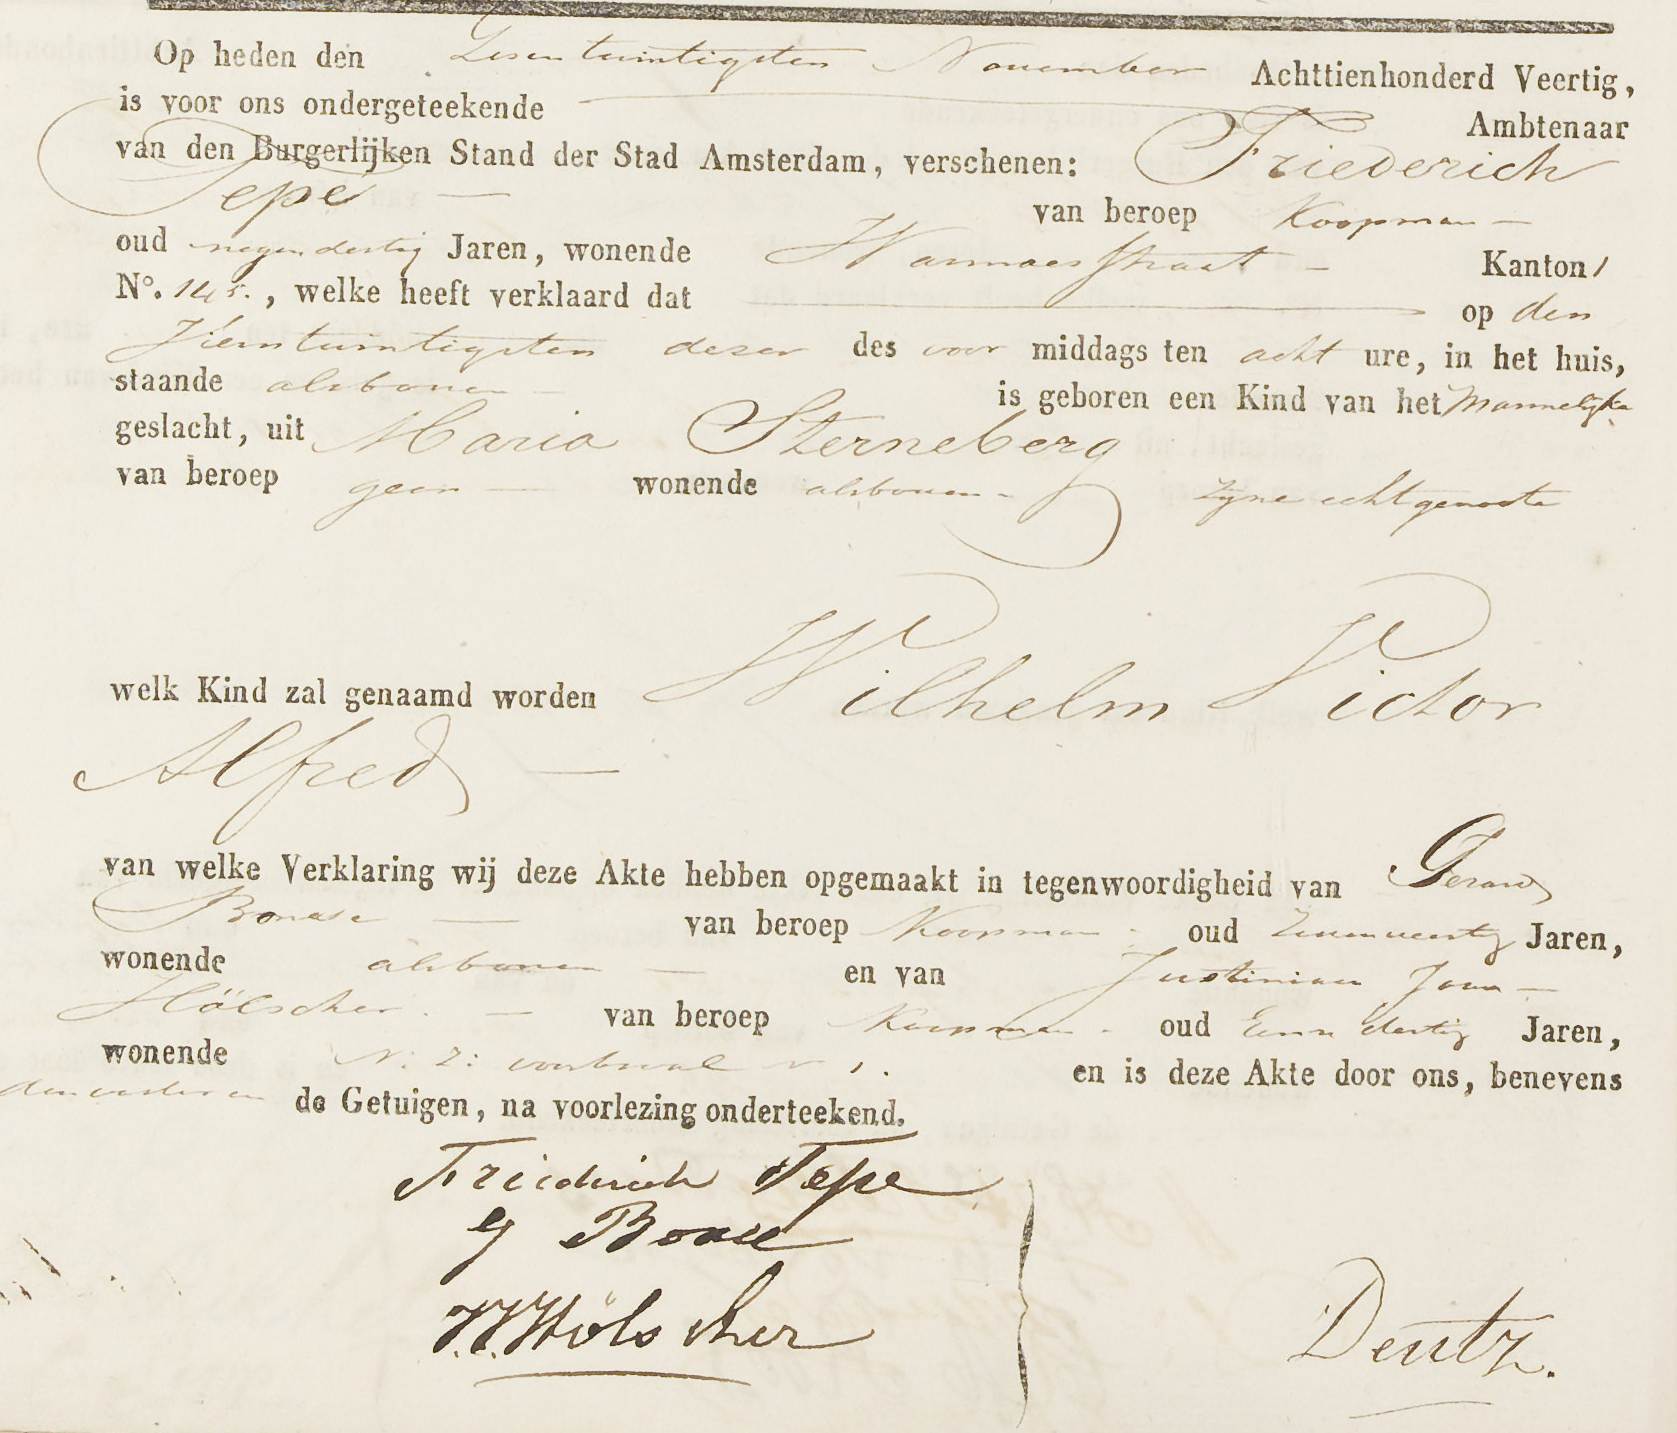 Op heden den Zesentwintigsten November Achttienhonderd Veertig,
is voor ons ondergeteekende Ambtenaar
van den Burgerlijken Stand der Stad Amsterdam, verschenen: Friederich
Tepe — van beroep Koopman —
oud negendertig Jaren, wonende Warmoesstraat — Kanton 1
No. 145., welke heeft verklaard dat op den
Vierentwintigsten dezer des voor middags ten acht ure, in het huis,
staande alsboven — is geboren een Kind van het Mannelijke
geslacht, uit Maria Sterneberg
van beroep geen — wonende alsboven - zijne echtgenoote
welk Kind zal genaamd worden Wilhelm Victor
Alfred —
van welke Verklaring wij deze Akte hebben opgemaakt in tegenwoordigheid van Gerard
— van beroep Koopman - oud Jaren,
wonende alsboven — en van Justinian Joan —
Hölscher. — van beroep Koopman - oud Jaren,
wonende N: Z: voorburgwal 1. en is deze Akte door ons, benevens
de Getuigen, na voorlezing onderteekend.
Friederich Tepe
J.J. Hölscher
Deutz.